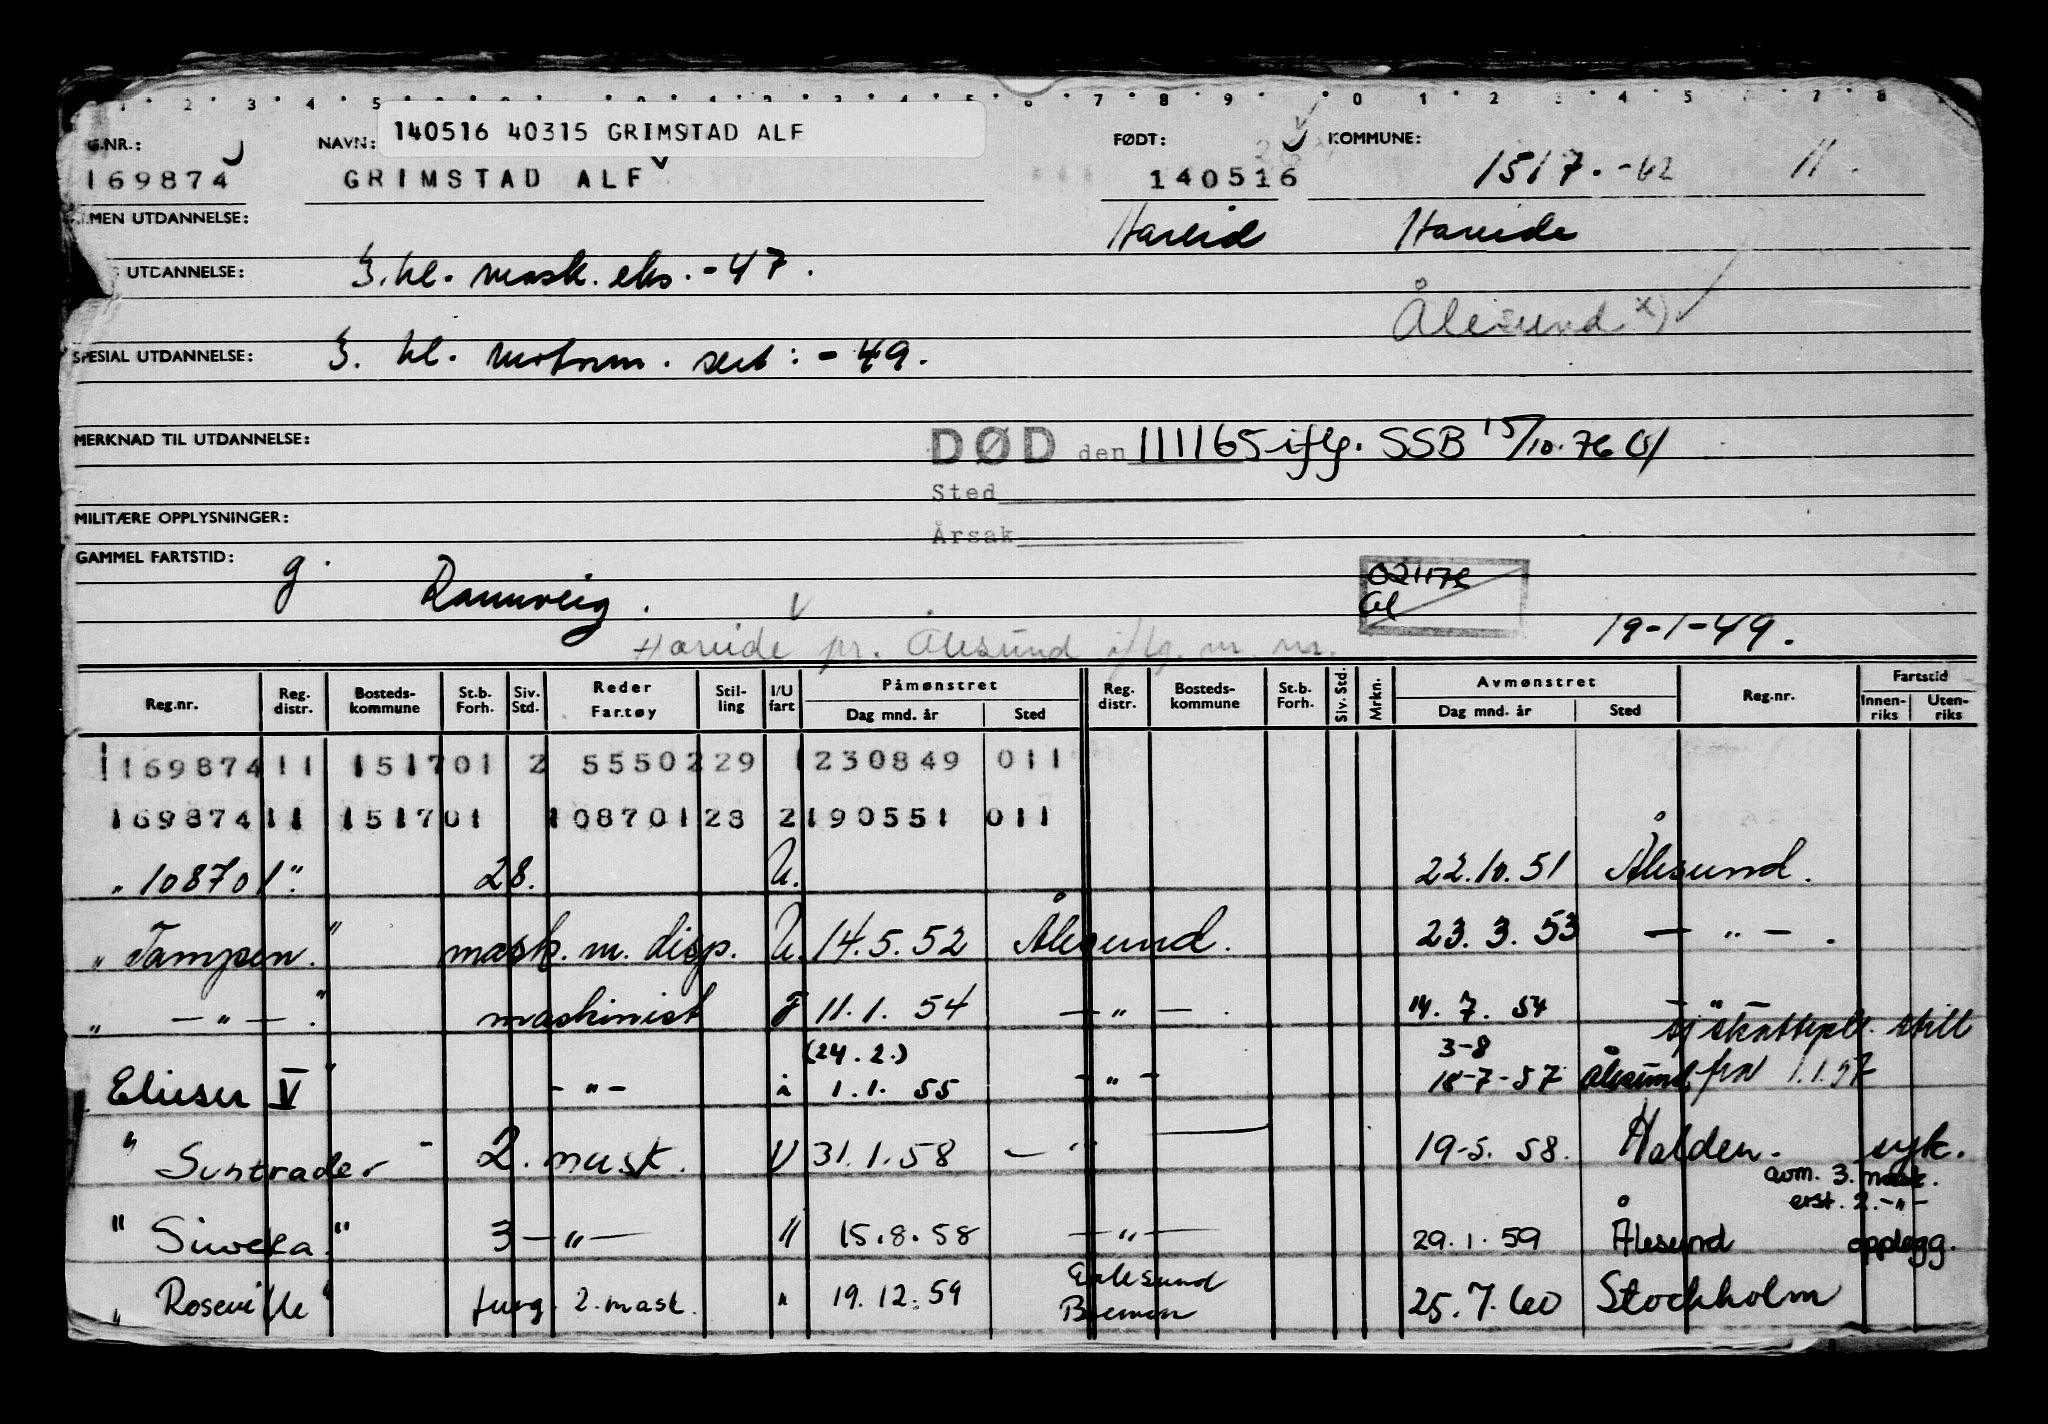 140516 40315 GRIMSTAD ALF
G.NR.: NAVN: FØDT: KOMMUNE:
169874 GRIMSTAD ALF 140516 1517.-62 11.
MEN UTDANNELSE: Hareid Hareide
UTDANNELSE: 3. kl. mask. eks. -47.
Ålesund x)
SPESIAL UTDANNELSE: 3. kl. motorm. sert: -49.
MERKNAD TIL UTDANNELSE: DØD den 111165 iflg. SSB 15/10.76
Sted
MILITÆRE OPPLYSNINGER:
Årsak
GAMMEL FARTSTID: g.
Rannveig. 19-1-49.
Hareide pr. Ålesund iflg. m. nr.
Reg.nr. Reg. distr. Bosteds-kommune St.b. Forh. Siv. Std. Reder Fartøy Stil-ling I/U fart Påmønstret Dag mnd. år Sted Reg. distr. Bosteds-kommune St.b. Forh. Siv. Std. Mrkn. Avmønstret Dag mnd. år Sted Reg.nr. Fartstid Innen-riks Uten-riks
169874 11 1517 01 2 5550229 1 230849 011
169874 11 1517 01 108701 28 2 190551 011
"108701" 28. U. 22.10.51 Ålesund.
"Tampen." mask. m. disp. U. 14.5.52 Ålesund. 23.3.53 — " — .
" — " — ." maskinist F 11.1.54 — " — . 14.7.54 — "
sj skattepl. still
(24.2.) 3-8
Elieser V" - " - i 1.1.55 - " - 18-7-57 Ålesund fra 1.1.57
" Suntrader " 2. mask. U 31.1.58 — " 19-5.58. Halden. syk.
avm. 3. mask.
erst. 2. - " -
" Siwela." 3 — " — " 15.8.58 — " — 29.1.59 Ålesund opplegg.
"Roseville" fung. 2. mask. " 19.12.59 Bremen 25.7.60 Stockholm